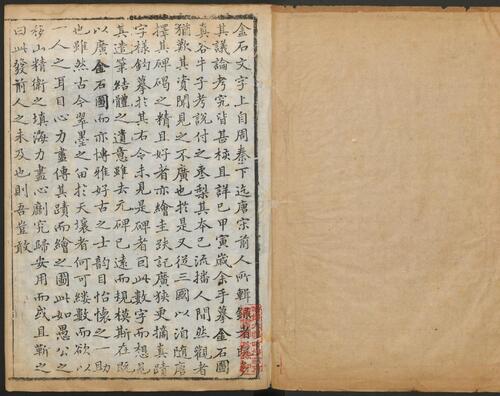 金石文字上自周秦下迄唐宋前人所輯錄者
其議論考究皆甚核且詳已甲寅歲余手摹金石圖
真谷牛子考說付之棗梨其本已流播人間然觀者
猶歎其資聞見之不廣也於是又從三國以洎隋唐
擇其碑碣之精且好者亦繪圭趺記廣狹更摘其蹟
字樣鈎摹於其右今未見是碑者因此數字而想見
其遺筆結體之遺意雖去元碑已遠而規模斯在既
以廣金石圖而亦博雅好古之士韵目怡懷之一助
也雖然古今翠墨之留於天壤者何可縷數而欲以
一人之耳目心力盡傳其蹟而繪之圖此如愚公之
移山精衛之填海力盡心劌究歸安用而或且靳之
曰此發前人之未及也則吾豈敢